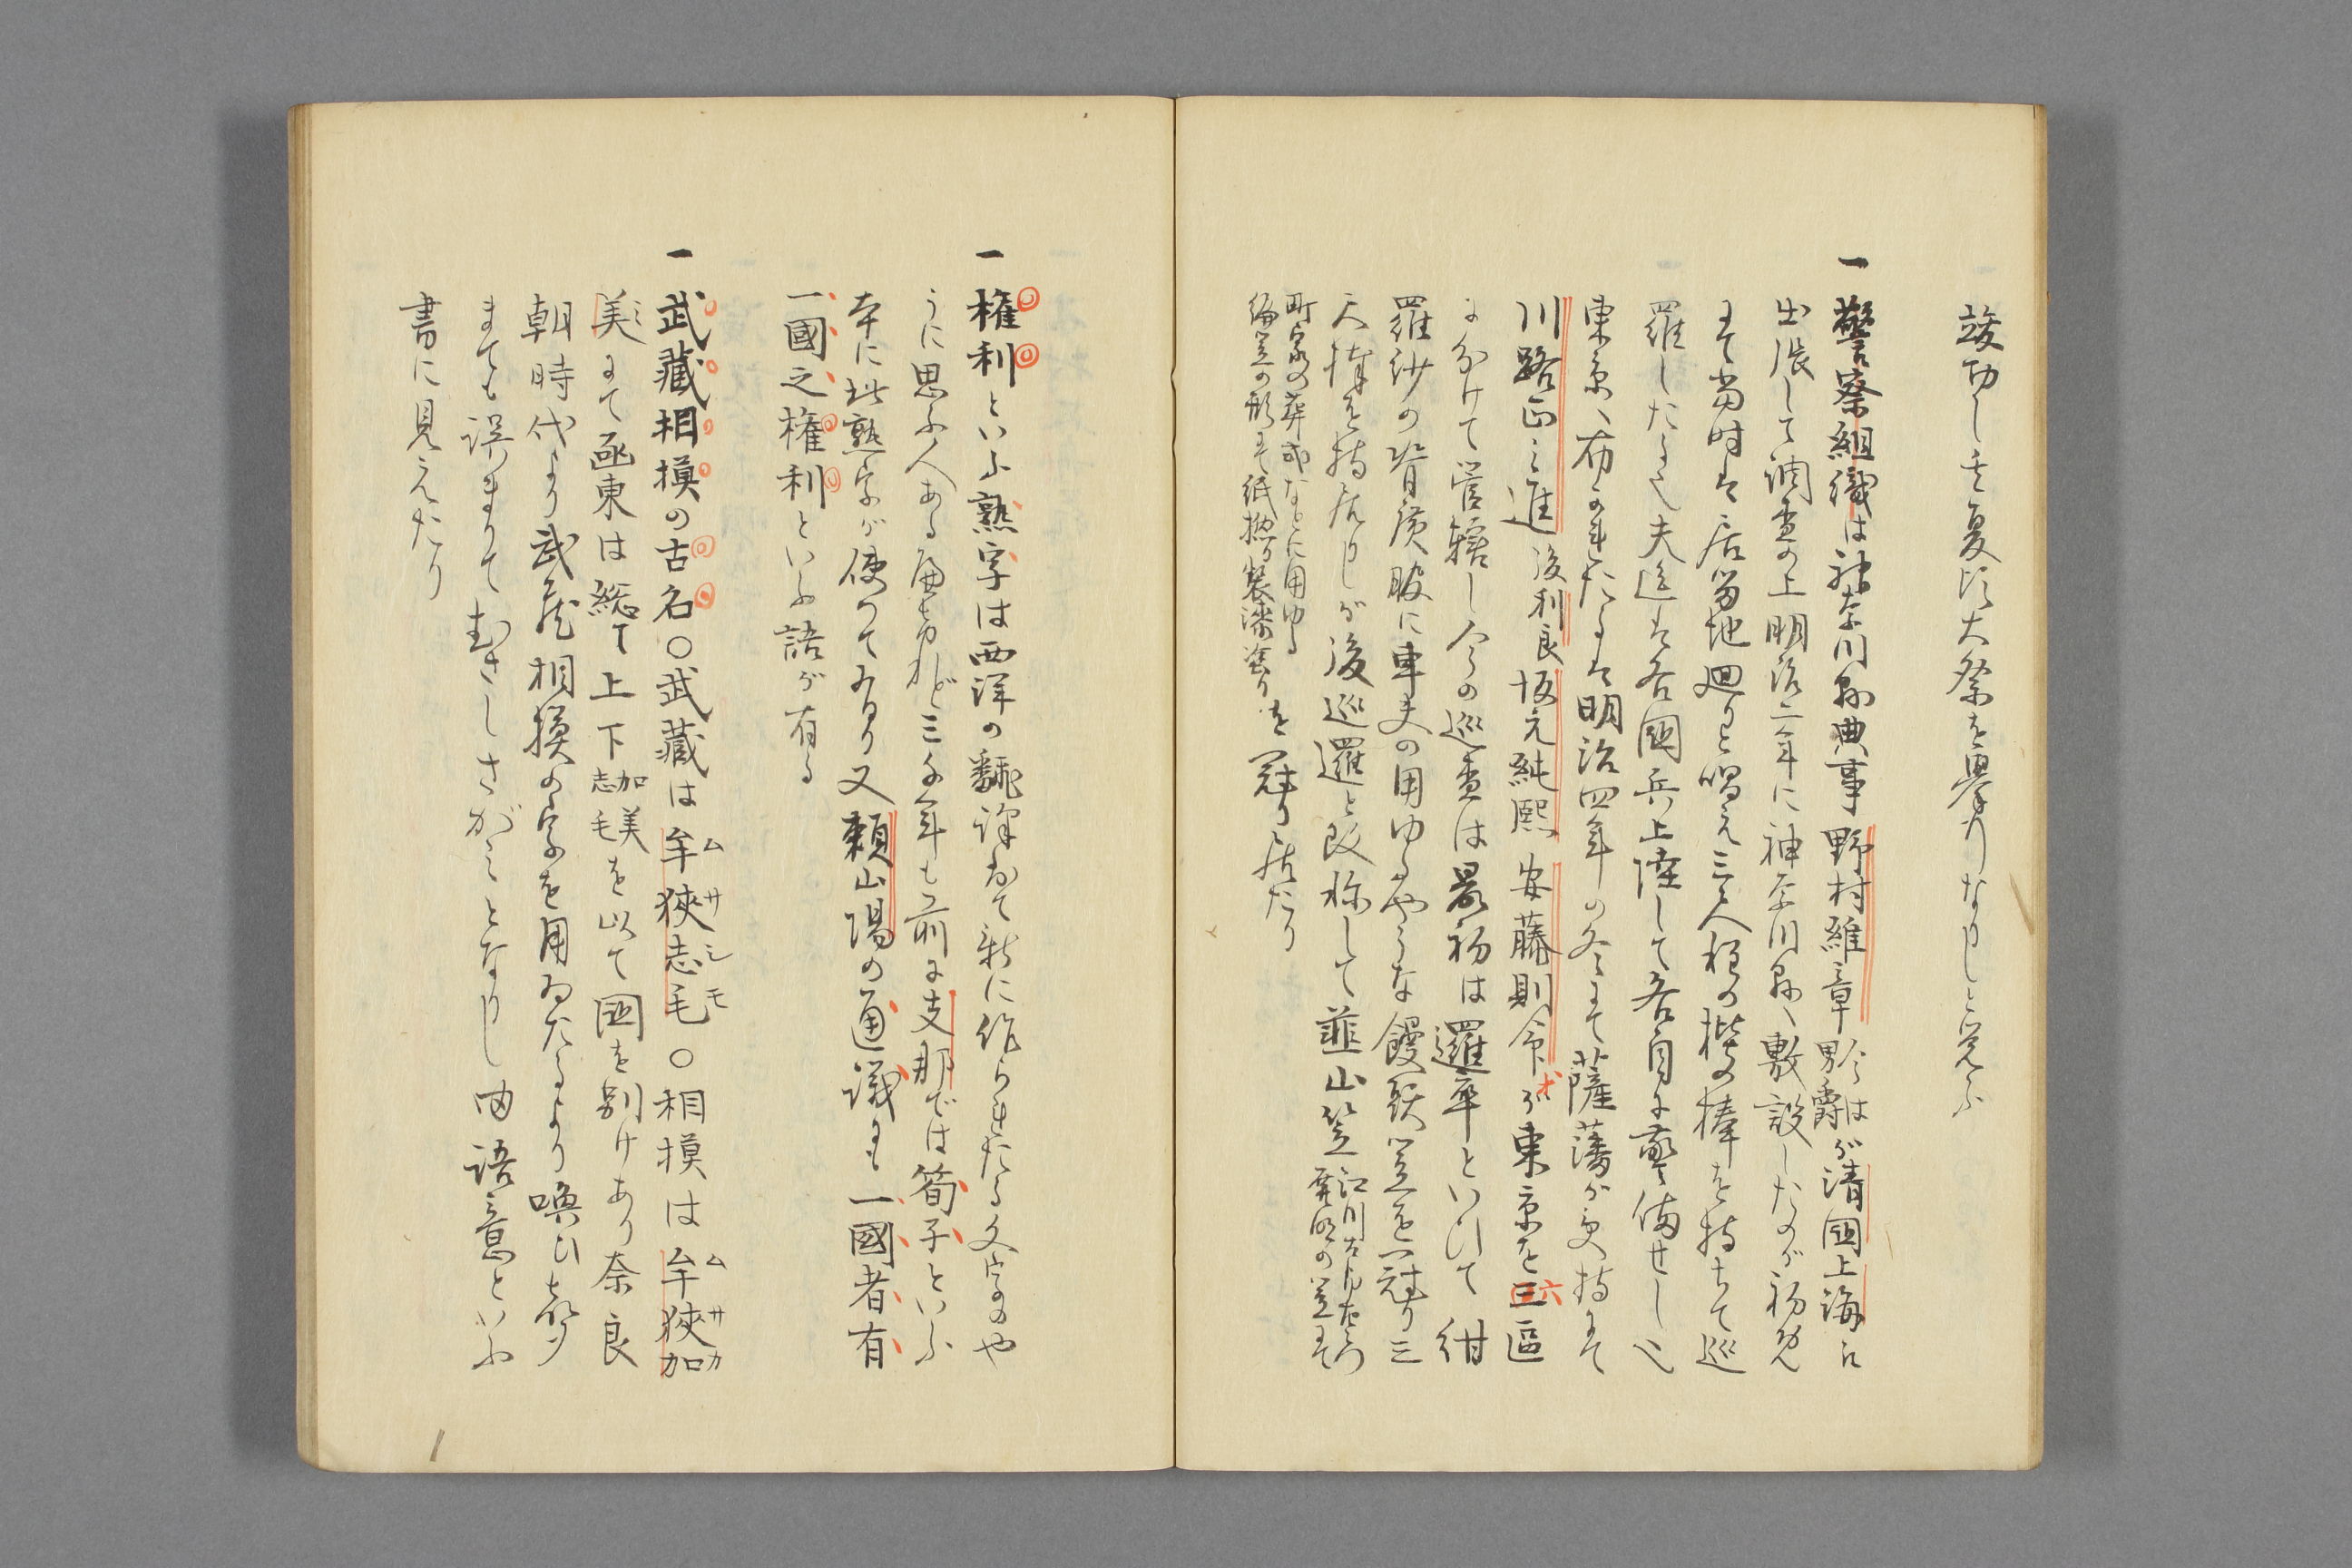 竣功し其夏頃大祭を擧行なりしと覚ふ
一 警察組織は神奈川縣典事野村維章今は男爵が清國上海に
出張して調査の上明治二年に神奈川縣へ敷設したのが初発
にて当時は居留地廻りと唱え三人程の樫の棒を持ちて巡
羅したるも夫迄は各國兵上陸して各自に警備せし也
東京へ布かれたるは明治四年の冬にて薩藩が受持にて
川路正之進後利良坂元純熈安藤則命才が東京を三六區
に分けて管轄し今の巡査は最初は邏卒といひて紺
羅紗の背廣服に車夫の用ゆるやうな饅頭笠を冠り三
尺棒を持居りしが後巡邏と改称して韮山笠江川太郎左衛門発明の笠にて
町家の葬式などに用ゆる編笠の形にて紙撚り製漆塗りを冠り居たり
一 権利といふ熟字は西洋の飜譯にて新に作られたる文字のや
うに思ふ人ある爲なれど三千年も前に支那では筍子といふ
本に此熟字が使つてあり又頼山陽の通議にも一國者有
一國之権利といふ語が有る
一 武藏相摸の古名〇武藏は牟狹志毛ムサシモ〇相摸は牟狹加ムサカ
美ミにて函東は総て上下加美志毛を以て國を別けあり奈良
朝時代より武藏相摸の字を用ゐたるより喚ひ声
までも誤まりてむさしさがみとなりし由語意といふ
書に見えたり